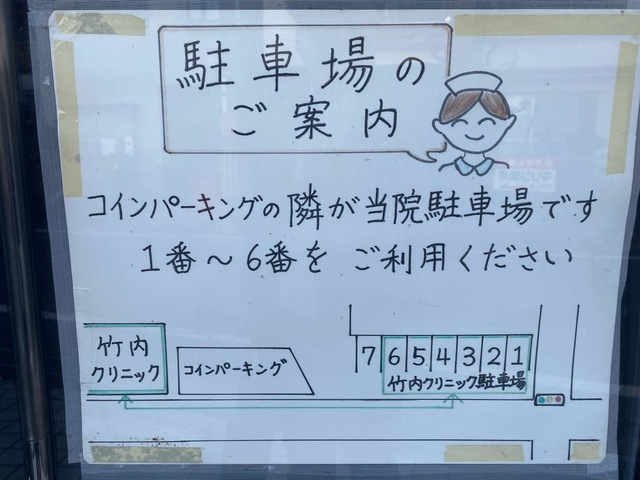 駐車場の
ご案内
コインパーキングの隣が当院駐車場です
1番～6番を ご利用ください
竹内
クリニック
コインパーキング
7 6 5 4 3 2 1
竹内クリニック駐車場